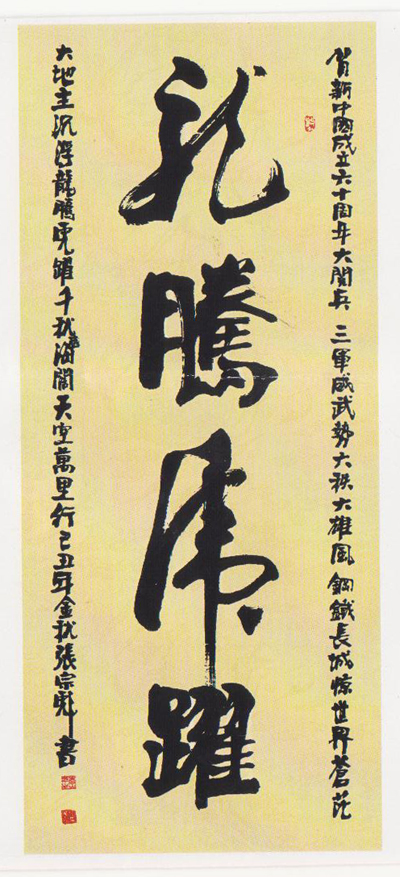 賀新中國成立六十周年大閱兵 三軍威武勢六秩大雄風鋼鐵長城惊世界蒼茫
龍騰虎躍
大地主沉浮龍騰虎躍千秋業海闊天空萬里行己丑年金秋張宗彪書